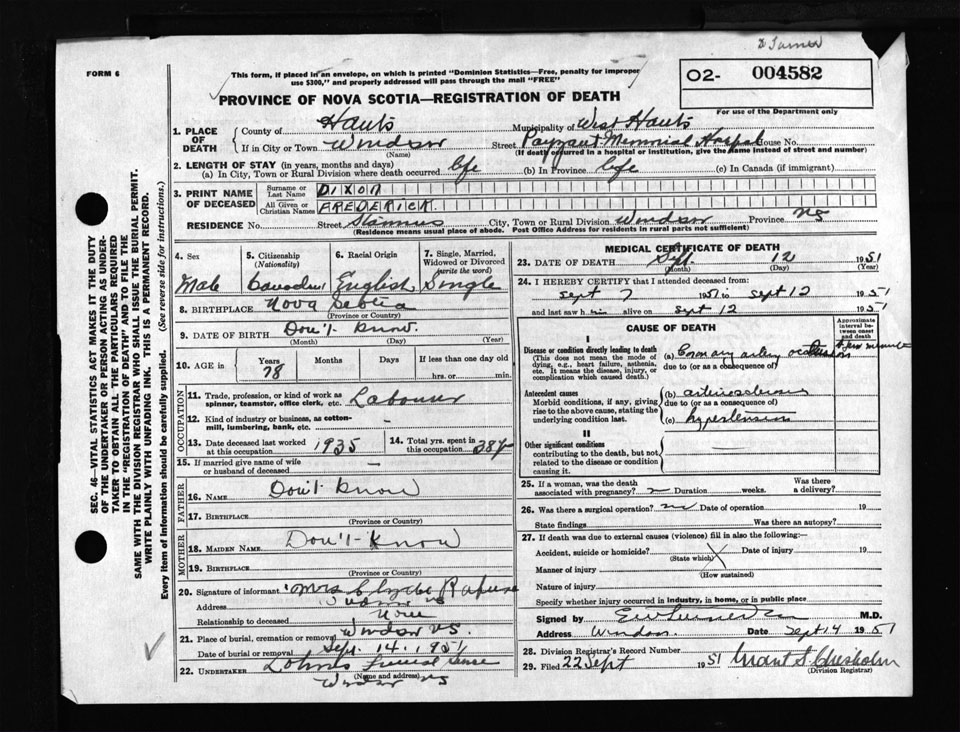 FORM 6
This form, if placed in an envelope, on which is printed "Dominion Statistics—Free, penalty for improper
use $300," and properly addressed will pass through the mail "FREE"
O2- 004582
For use of the Department only
PROVINCE OF NOVA SCOTIA—REGISTRATION OF DEATH
1. PLACE OF DEATH
County of Hants Municipality of West Hants
If in City or Town Windsor Street Payzant Memorial Hospital House No.
(Name) (If death occurred in a hospital or institution, give the name instead of street and number)
2. LENGTH OF STAY (in years, months and days)
(a) In City, Town or Rural Division where death occurred life (b) In Province life (c) In Canada (if immigrant)
3. PRINT NAME OF DECEASED
Surname or Last Name DIXON
All Given or Christian Names FREDERICK.
RESIDENCE No. Street City, Town or Rural Division Windsor Province NS
(Residence means usual place of abode. Post Office Address for residents in rural parts not sufficient)
4. Sex Male
5. Citizenship (Nationality) Canadian
6. Racial Origin English
7. Single, Married, Widowed or Divorced (write the word) Single
8. BIRTHPLACE Nova Scotia
(Province or Country)
9. DATE OF BIRTH Don't Know.
(Month) (Day) (Year)
10. AGE in Years 78 Months Days If less than one day old
hrs. or min.
OCCUPATION
11. Trade, profession, or kind of work as spinner, teamster, office clerk, etc. Labourer
12. Kind of industry or business, as cotton-mill, lumbering, bank, etc. –
13. Date deceased last worked at this occupation 1935
14. Total yrs. spent in this occupation 38 y
15. If married give name of wife or husband of deceased –
FATHER
16. NAME Don't Know
17. BIRTHPLACE
(Province or Country)
MOTHER
18. MAIDEN NAME Don't Know
19. BIRTHPLACE
(Province or Country)
20. Signature of informant Mrs Clyde Rafuse
Address Windsor NS
Relationship None
21. Place of burial, cremation or removal Windsor NS.
Date of burial or removal Sept. 14. 1951
22. UNDERTAKER Funeral Home
(Name and address)
Windsor NS
MEDICAL CERTIFICATE OF DEATH
23. DATE OF DEATH Sept. 12 1951
(Month) (Day) (Year)
24. I HEREBY CERTIFY that I attended deceased from:
Sept 7 1951 to Sept 12 1951
and last saw him alive on Sept 12 1951
CAUSE OF DEATH
Approximate interval between onset and death
I
Disease or condition directly leading to death
(This does not mean the mode of dying, e.g., heart failure, asthenia, etc. It means the disease, injury, or complication which caused death.)
(a) Coronary artery occlusion few minutes
due to (or as a consequence of)
Antecedent causes
Morbid conditions, if any, giving rise to the above cause, stating the underlying condition last.
(b) arteriosclerosis
due to (or as a consequence of)
(c) hypertension
II
Other significant conditions
contributing to the death, but not related to the disease or condition causing it.
25. If a woman, was the death associated with pregnancy? Duration weeks. Was there a delivery?
26. Was there a surgical operation? no Date of operation 19
State findings Was there an autopsy?
27. If death was due to external causes (violence) fill in also the following:
Accident, suicide or homicide? Date of injury 19
(State which)
Manner of injury
(How sustained)
Nature of injury
Specify whether injury occurred in industry, in home, or in public place
Signed by M.D.
Address Windsor Date Sept 14 1951
28. Division Registrar's Record Number
29. Filed 22 Sept 1951 Grant S. Chisholm
(Division Registrar)
SEC. 46—VITAL STATISTICS ACT MAKES IT THE DUTY
OF THE UNDERTAKER OR PERSON ACTING AS UNDER-
TAKER TO OBTAIN ALL THE PARTICULARS REQUIRED
IN THE "REGISTRATION OF DEATH" AND TO FILE THE
SAME WITH THE DIVISION REGISTRAR WHO SHALL ISSUE THE BURIAL PERMIT.
WRITE PLAINLY WITH UNFADING INK. THIS IS A PERMANENT RECORD.
Every item of Information should be carefully supplied. (See reverse side for instructions.)